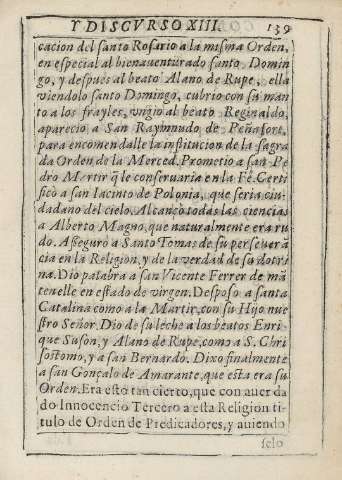 Y DISCVRSO XIII. 139
cacion del santo Rosario a la misma Orden,
en especial al bienauenturado santo Domin
go, y despues al beato Alano de Rupe, ella
viendolo santo Domingo, cubrio con su man
to a los frayles, vngio al beato Reginaldo,
aparecio a San Raymundo de Peñafort,
para encomendalle la institucion de la sagra
da Orden de la Merced. Prometio a san Pe
dro Martir q̃ le conseruaria en la Fe. Certi
ficò a san Iacinto de Polonia, que seria ciu-
dadano del cielo. Alcançò todas las ciencias
a Alberto Magno, que naturalmente era ru
do. Asseguro a Santo Tomas de su perseuerã
cia en la Religion, y de la verdad de su dotri
na. Dio palabra a san Vicente Ferrer de mã
tenelle en estado de virgen. Desposo a santa
Catalina como a la Martir, con su Hijo nue
stro Señor. Dio de su leche a los beatos Enri
que Suson, y Alano de Rupe, como a S. Chri
sostomo, y a san Bernardo. Dixo finalmente
a san Gonçalo de Amarante, que esta era su
Orden. Era esto tan cierto, que con auer da
do Innocencio Tercero a esta Religion ti-
tulo de Orden de Predicadores, y auiendo
selo